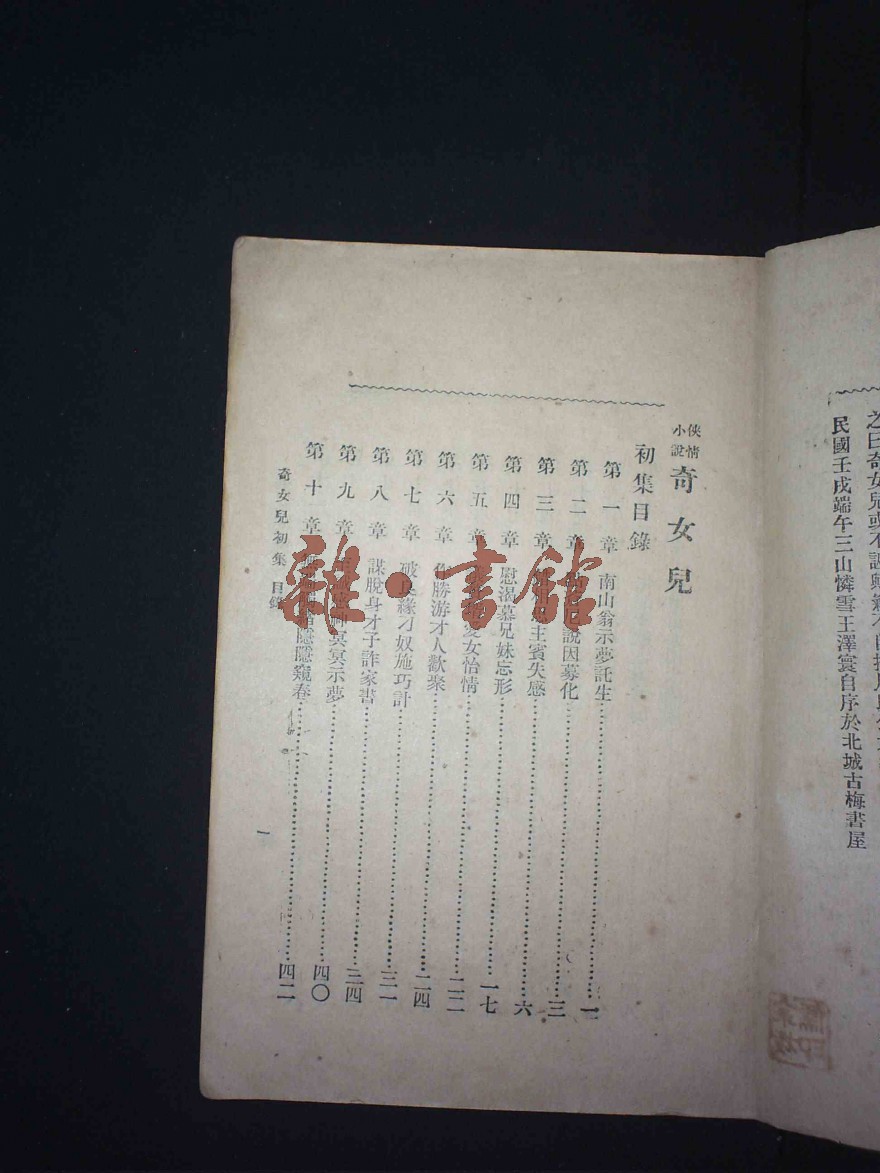 之曰奇女兒
民國壬戌端午三山憐雪王澤寰自序於北城古梅書屋
俠情小說 奇女兒
初集目錄
第一章 南山翁示夢託生 一
第二章 說因募化 三
第三章 主賓失感 六
第四章 慰渴慕兄妹忘形 一七
第五章 愛女怡情 二二
第六章 勝游才人歡聚 二四
第七章 破良緣刁奴施巧計 三一
第八章 謀脫身才子詐家書 三四
第九章 冥冥示夢 四〇
第十章 隱隱窺春 四二
奇女兒初集 目錄
一
雜·書館